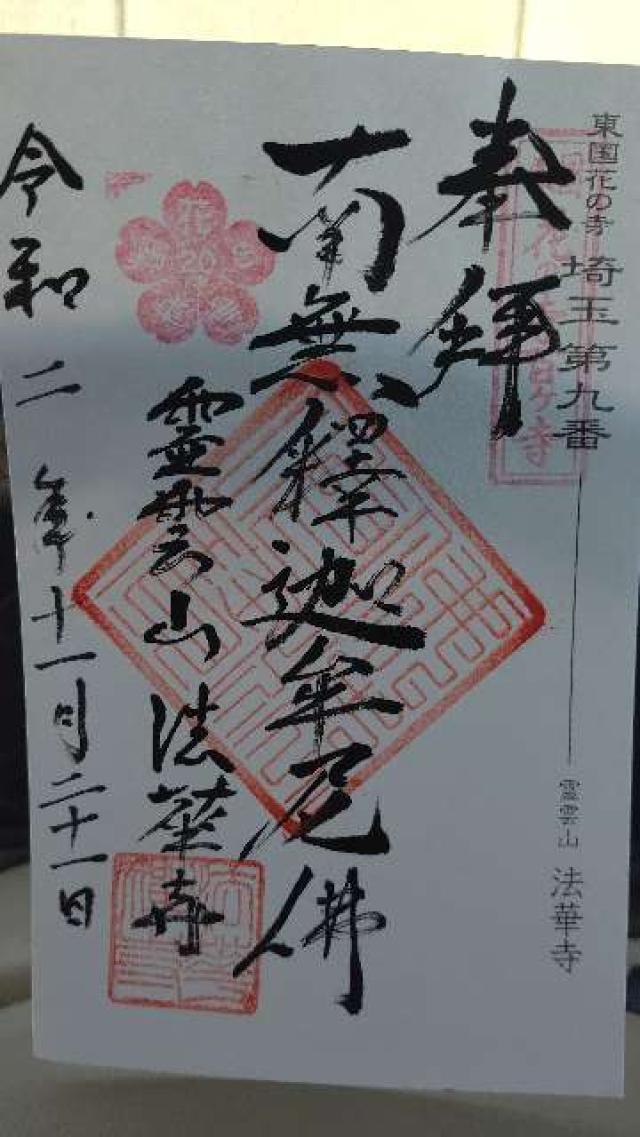 東国花の寺 埼玉第九番 霊雲山 法華寺
奉拝
南無釋迦牟尼佛
靈雲山法華寺
令和二年十一月二十一日
花
20